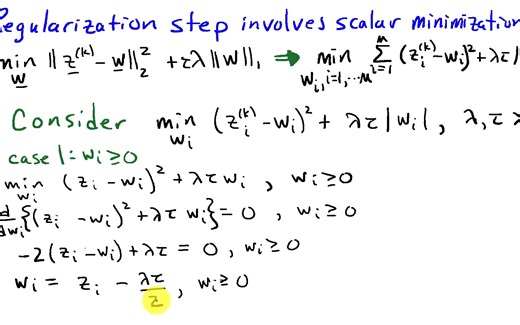 Regularization step involves scalar minimization
min_w ‖z^(k) - w‖₂² + τλ‖w‖₁ ⇒ min_{w_i, i=1,...M} Σ_{i=1}^{M} (z_i^(k) - w_i)² + λτ|
Consider min_{w_i} (z_i^(k) - w_i)² + λτ|w_i| , λ,τ >
case 1: w_i ≥ 0
min_{w_i} (z_i - w_i)² + λτ w_i , w_i ≥ 0
d/dw_i {(z_i - w_i)² + λτ w_i} = 0 , w_i ≥ 0
-2(z_i - w_i) + λτ = 0 , w_i ≥ 0
w_i = z_i - λτ/2 , w_i ≥ 0